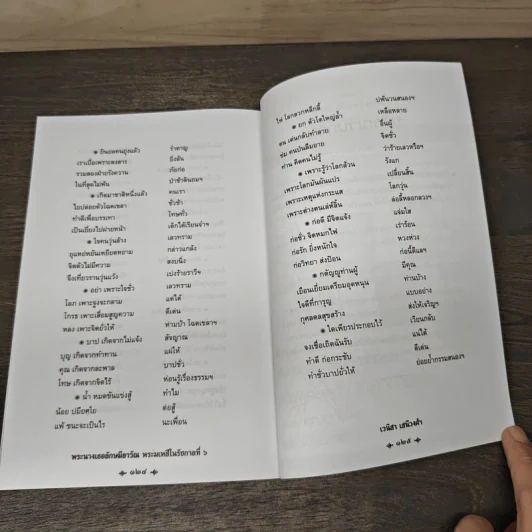 เราเบื่อเพราะสงสาร ยิ่งล้น
รวมสองฝ่ายรังควาน ก่อก่อ
ในที่สุดไม่พ้น
เกิดมาชาติหนึ่งแล้ว คนเรา
ใยปล่อยตัวโฉดเขลา ชั่วช้า
ทำดีเพื่อบรรเทา โทษทั่ว
เป็นเยี่ยงไปฝ่ายหน้า
ใจคนวุ่นล้าง เลวทราม
กล่าวแกล้ง
จิตตัวไม่มีความ สงบนิ่ง
อย่า เพราะใจชั่ว เลวทราม
โลภ เพราะจูงจะกลาม แต่ได้
โกรธ เพราะเสื่อมสูญความ ดีเด่น
หลง เพราะจิตยั่วให้ ห่ามบ้า โฉดเขลาฯ
บาป เกิดจากไม่แจ้ง สัจญาณ
บุญ เกิดจากทำทาน แผ่ให้
คุณ เกิดจากละพาล บาปชั่ว
โทษ เกิดจากจิตไร้ หย่อนรู้เรื่องธรรมฯ
น้ำ หมดขันแข่งสู้ ทำไม
น้อย บ่มีอดไย ต่อสู้
แพ้ ชนะจะเป็นไร นะเพื่อน
พระนางเธอลักษมีลาวัณ พระมเหสีในรัชกาลที่ ๖
๑๒๔
ไฟ โลกลวกหลีกลี้
อก ตัวโตใหญ่ล้ำ เหลือหลาย
ตน เด่นกลับทำลาย อื่นผู้
ชุ่ม คนบ่นลืมอาย จิตชั่ว
ท่าน คิดคนไม่รู้ ว่าร้ายเลวหรือฯ
เพราะรู้ว่าโลกล้วน รังแก
เพราะโลกมันผันแปร เปลี่ยนสิ้น
เพราะเหตุแห่งกระแส โลกวุ่น
เพราะต่างคนเล่ห์ลิ้น ล่อลี้หลอกลวงฯ
ก่อดี มีจิตแจ้ง แจ่มใส
ก่อชั่ว จิตหมกไฟ เร่าร้อน
ก่อรัก ยิ่งหนักใจ ห่วงหวง
ก่อวิทยา ส่งป้อน ก่อนี้ดีแลฯ
กตัญญูท่านผู้ มีคุณ
เยื่อนเยี่ยมเตรียมอุดหนุน ท่านบ้าง
ใจดีที่การุญ แบบอย่าง
กุศลดลสุขสร้าง ส่งให้เจริญฯ
ใดเพียรประกอบไว้ เวียนกลับ
จงเชื่อเถิดฉันรับ แน่ได้
ทำดี ก่อกระชับ ดีเด่น
ทำชั่วบาปยั่วให้ ย่อยย้ำกรรมสนองฯ
เวนิสา เสนีวงศ์ฯ
๑๒๕